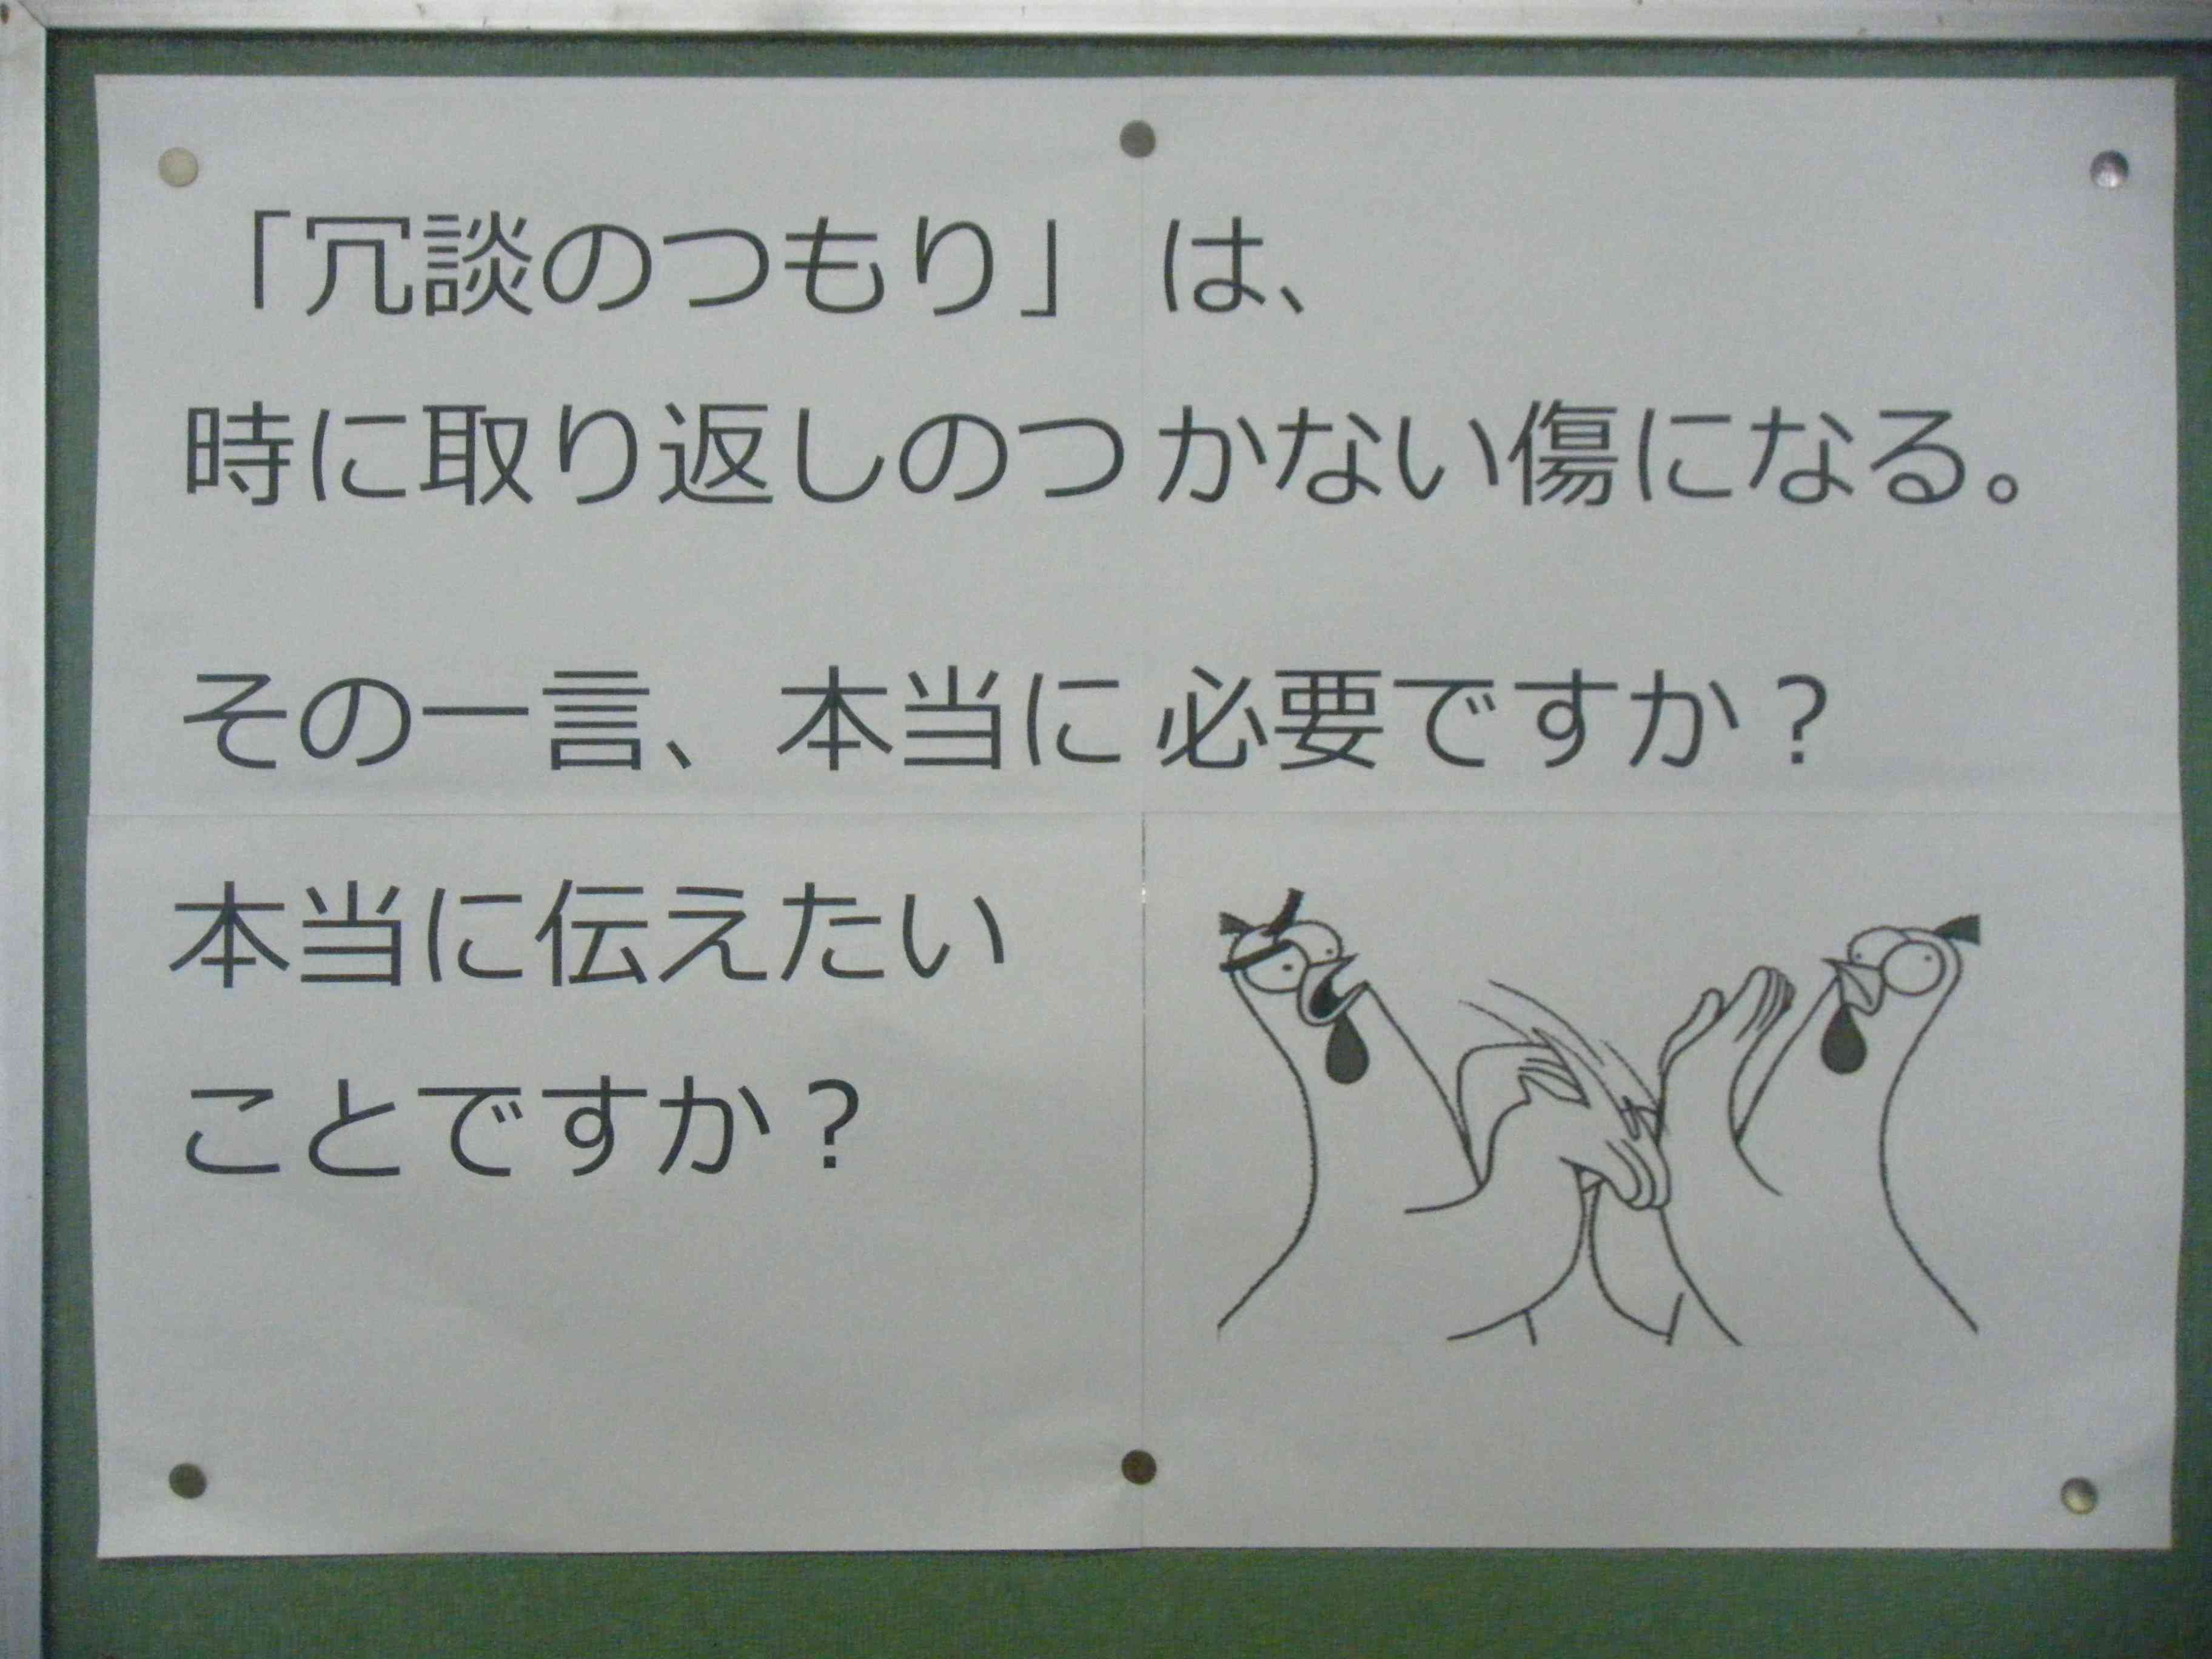 「冗談のつもり」は、
時に取り返しのつかない傷になる。
その一言、本当に必要ですか？
本当に伝えたい
ことですか？